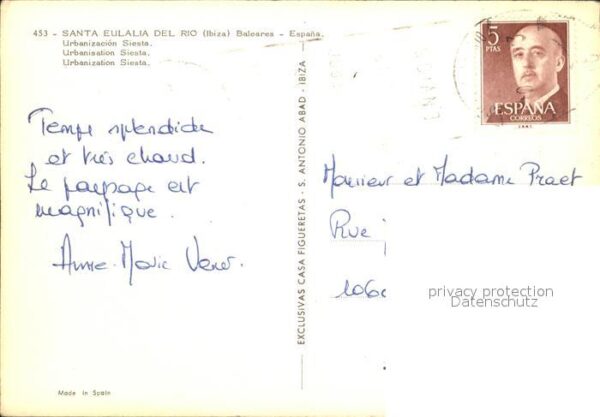 453 - SANTA EULALIA DEL RIO (Ibiza) Baleares - España.
Urbanización Siesta.
Urbanisation Siesta.
Urbanization Siesta.
5
PTAS
ESPAÑA
CORREOS
Temps splendide
et très chaud.
Le paysage est
magnifique.
Anne-Marie
EXCLUSIVAS CASA FIGUERETAS - S. ANTONIO ABAD - IBIZA
Monsieur et Madame Praet
Rue
1060
privacy protection
Datenschutz
Made in Spain